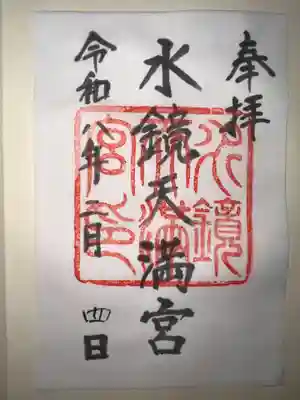 奉拝
水鏡天満宮
令和八年二月四日